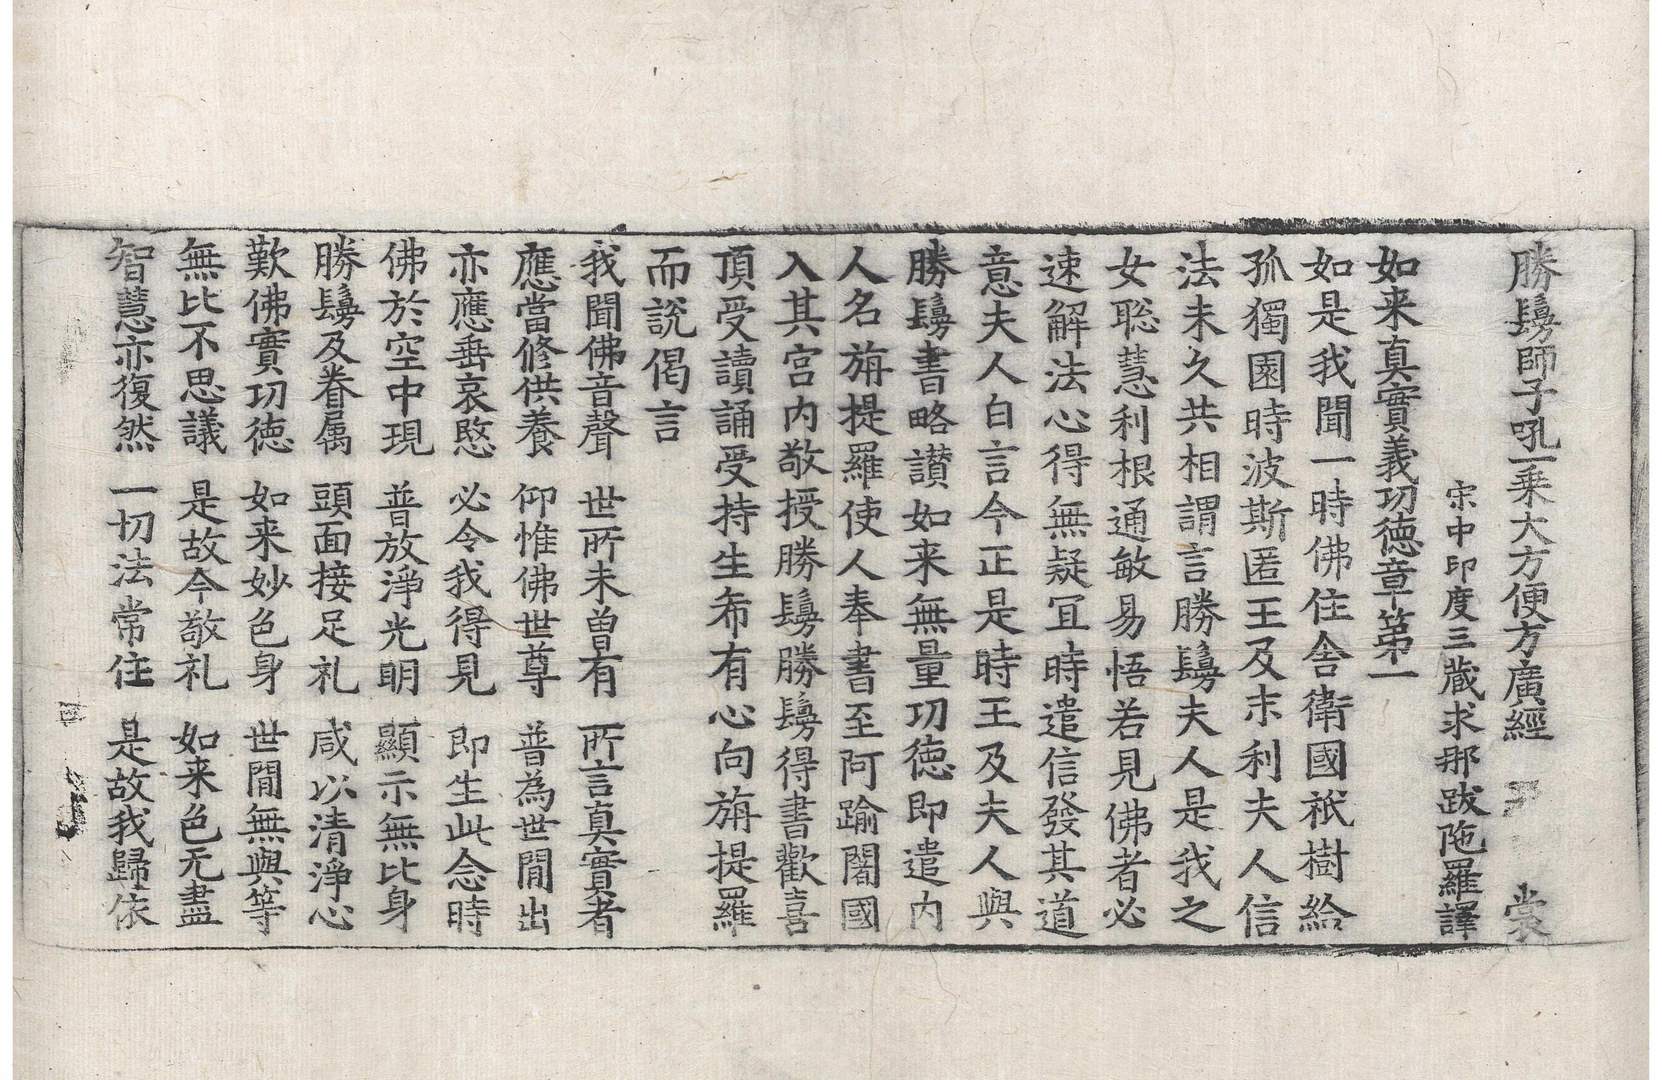 勝鬘師子吼一乗大方便方廣經 裳
宋中印度三藏求那跋陁羅譯
如来真實義功德章第一
如是我聞一時佛住舎衛國祇樹給
孤獨園時波斯匿王及末利夫人信
法未久共相謂言勝鬘夫人是我之
女聡慧利根通敏易悟若見佛者必
速解法心得無疑冝時遣信發其道
意夫人白言今正是時王及夫人與
勝鬘書略讃如来無量功徳即遣内
人名旃提羅使人奉書至阿踰闍國
入其宫内敬授勝鬘勝鬘得書歡喜
頂受讀誦受持生希有心向旃提羅
而說偈言
我聞佛音聲 世所未曽有 所言真實者
應當修供養 仰惟佛世尊 普為世間出
亦應垂哀愍 必令我得見 即生此念時
佛於空中現 普放淨光明 顯示無比身
勝鬘及眷属 頭面接足礼 咸以清淨心
歎佛實功徳 如来妙色身 世間無與等
無比不思議 是故今敬礼 如来色无盡
智慧亦復然 一切法常住 是故我歸依